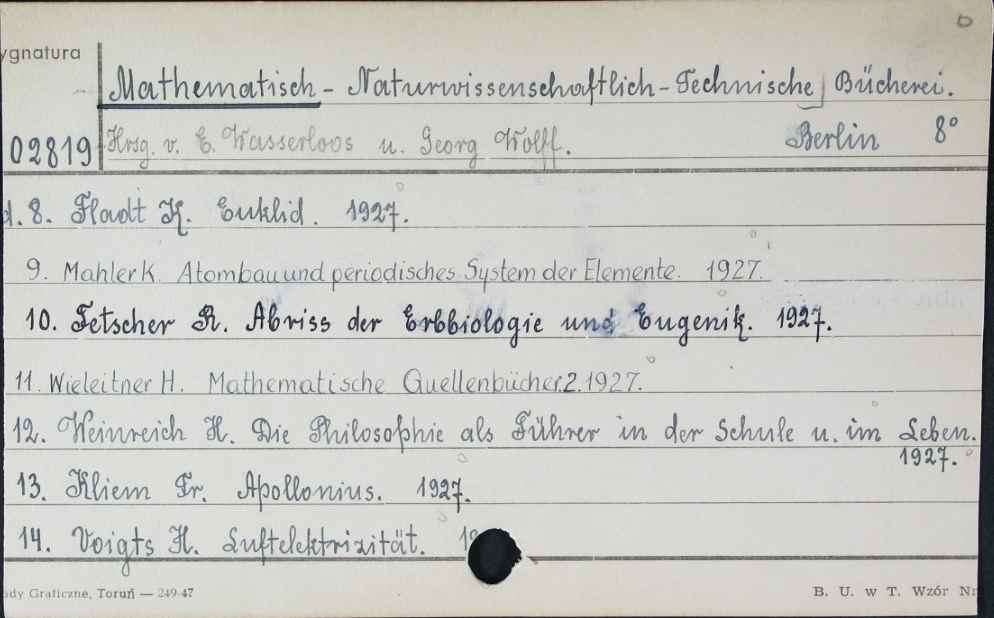 ygnatura
Mathematisch - Naturwissenschaftlich - Technische Bücherei.
02819 Hrsg. v. E. Wasserloos u. Georg Wolff. Berlin 8°
d. 8. Fladt K. Euklid. 1927.
9. Mahler K. Atombau und periodisches System der Elemente. 1927.
10. Fetscher R. Abriss der Erbbiologie und Eugenik. 1927.
11. Wieleitner H. Mathematische Quellenbücher, 2. 1927.
12. Weinreich H. Die Philosophie als Führer in der Schule u. im Leben.
1927.
13. Kliem Fr. Apollonius. 1927.
14. Voigts H. Luftelektrizität. 19
ady Graficzne, Toruń — 249-47 B. U. w T. Wzór Nr